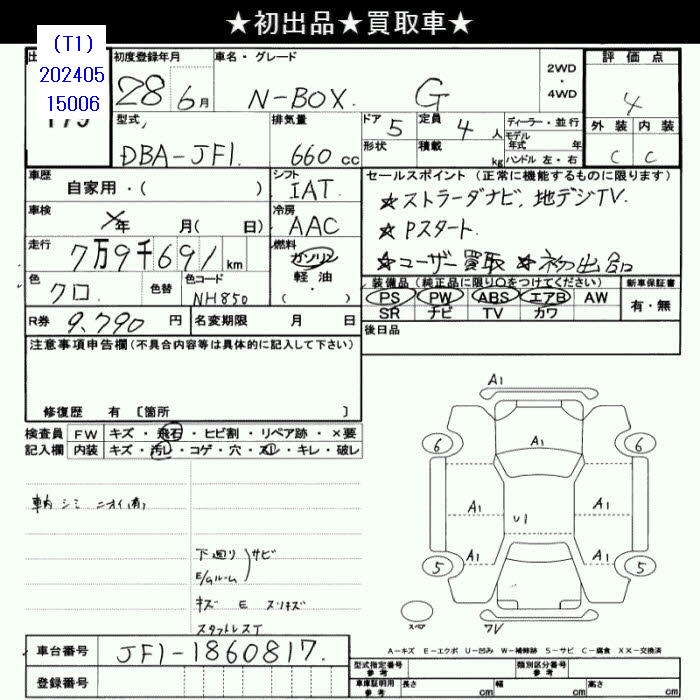 ★初出品★買取車★
(T1)
202405
15006
初度登録年月 車名・グレード 評価点
28 6月 N-BOX. G 2WD・4WD 4
型式 排気量 ドア 5 定員 4 人 ディーラー・並行 外装 内装
DBA-JF1. 660cc 形状 積載 kg モデル年式 年 ハンドル 左・右 C C
車歴 自家用・( ) シフト IAT.
セールスポイント(正常に機能するものに限ります)
☆ストラーダナビ、地デジTV.
車検 年 月( 日) 冷房 AAC
☆Pスタート.
走行 7万9千691 km 燃料 ガソリン 軽・油 ( )
☆ユーザー買取 ☆初出品
色 クロ. 色替 色コード NH850
装備品(純正品に限り○をつけてください) 新車保証書
PS PW ABS エアB AW 有・無
SR ナビ TV カワ
R券 9.790 円 名変期限 月 日
後日品
注意事項申告欄(不具合内容等は具体的に記入して下さい)
修復歴 有 〔箇所 〕
検査員 FW キズ・飛石・ヒビ割・リペア跡・×要
記入欄 内装 キズ・汚レ・コゲ・穴・スレ・キレ・破レ
A1
6 A1 6
A1 U1 A1
A1 A1
5 5
車内 シミ ニオイ(有)
下廻り サビ
E/Gルーム
キズ E スリキズ
スタットレスT
スペア
A-キズ E-エクボ U-凹み W-補修跡 S-サビ C-腐食 XX-交換済
車台番号 JF1-1860817.
登録番号
型式指定番号 参考 類別区分番号 参考
車庫証明用 参考 長さ cm 幅 cm 高さ cm